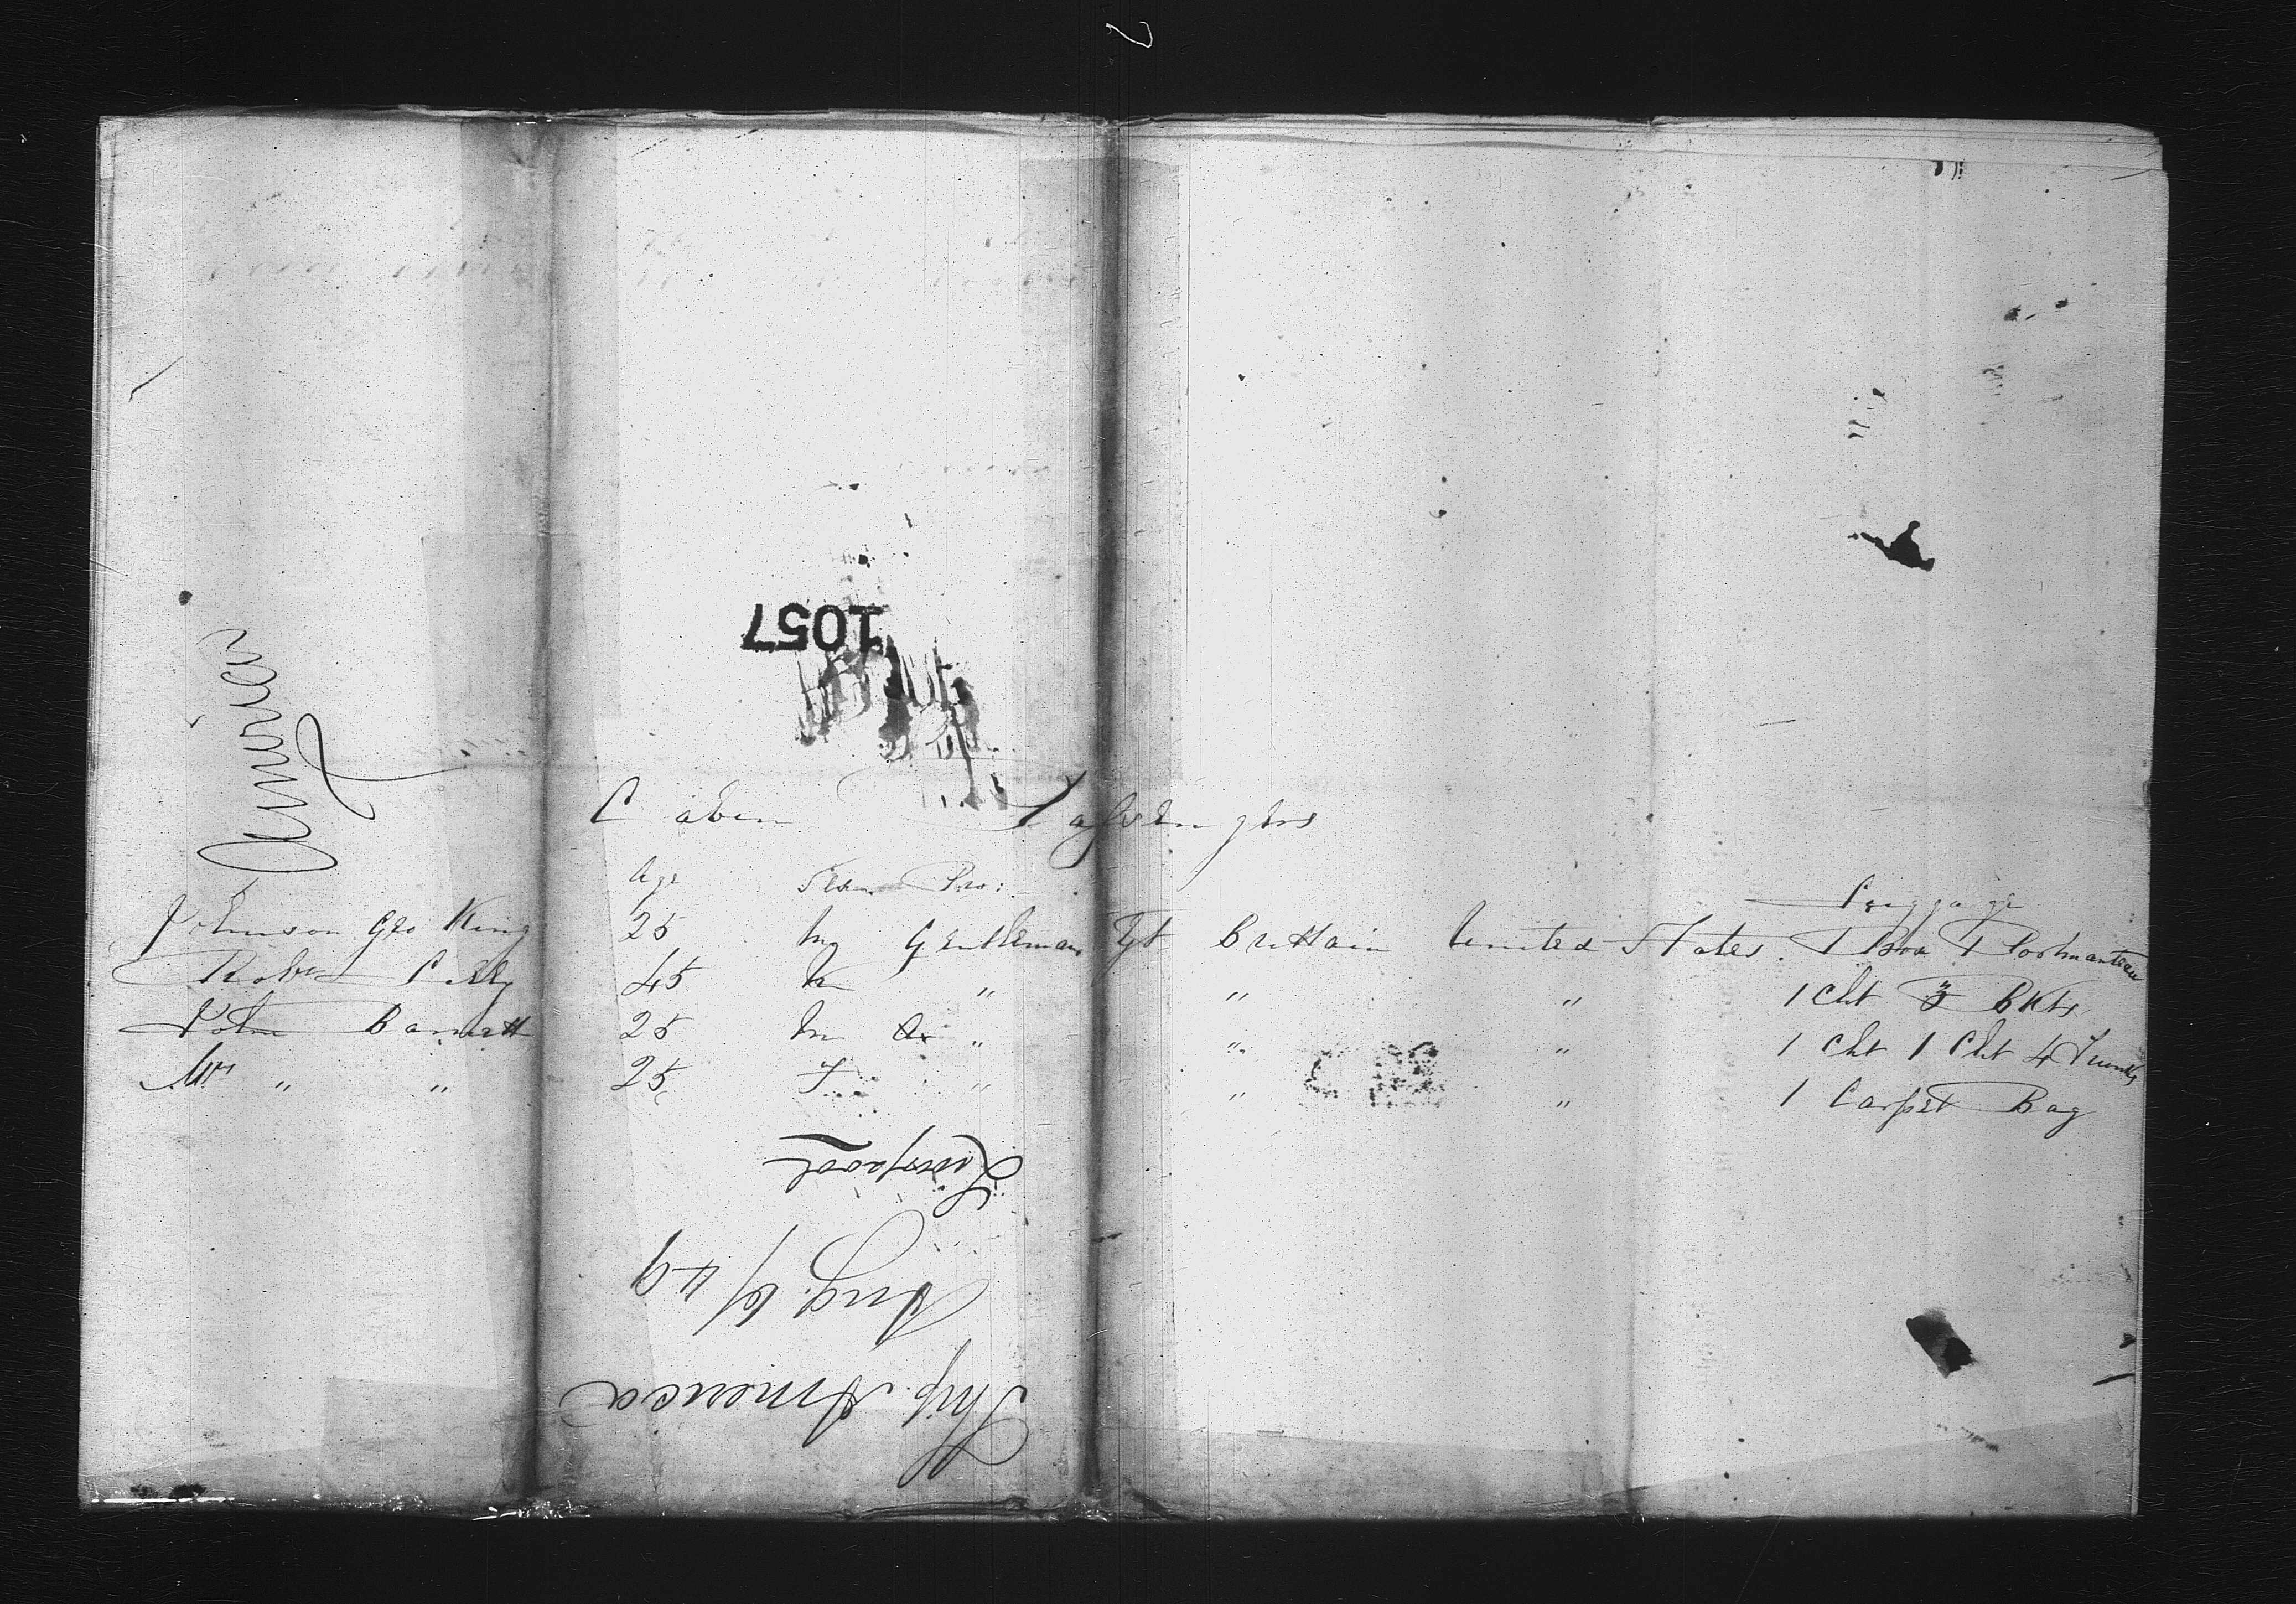 America
1057
Caben Passengers
Age Sex Pro:
Luggage
Johnson Geo King 25 M Gentleman Gt Brittain United States 1 Box 1 Portmanteau
Robt 45 M " " " 1 Cht 3 Bkts
John Barnett 25 M " " " 1 Cht 1 Cht 4 Trunks
Mrs " " 25 F " " " 1 Carpet Bag
Ship America
Aug. 6/49
Liverpool